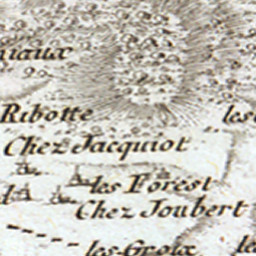 Ribotte
Chez Jacquiot
les Forest
Chez Joubert
les Groix